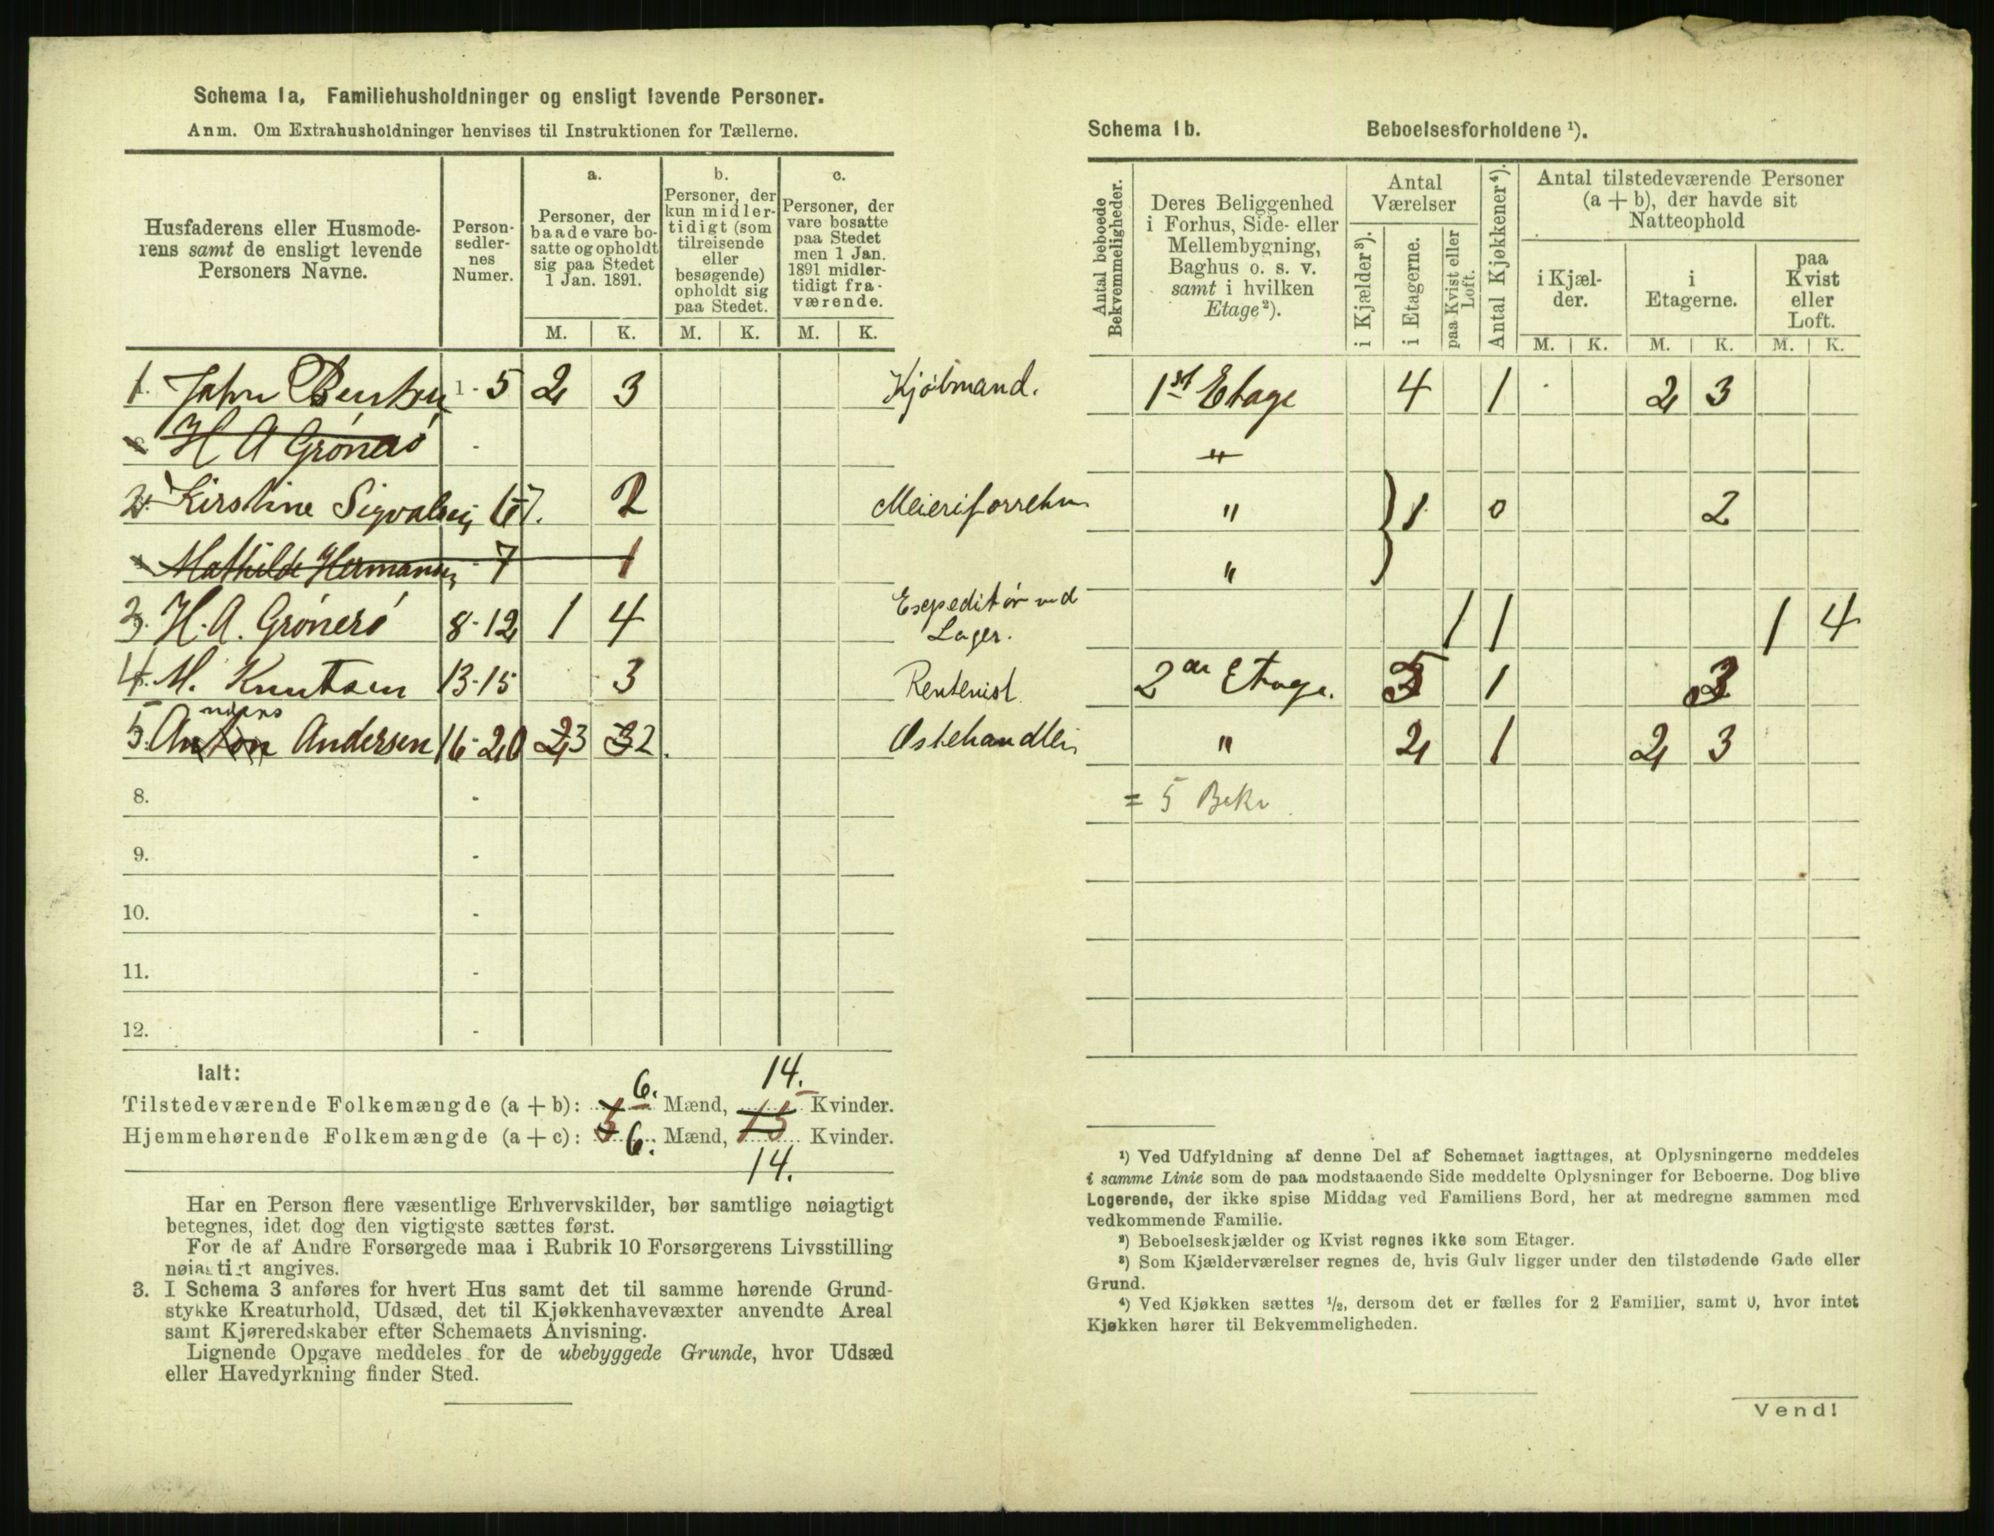 Schema 1a, Familiehusholdninger og ensligt levende Personer.
Anm. Om Extrahusholdninger henvises til Instruktionen for Tællerne.
Husfaderens eller Husmode-
rens samt de ensligt levende
Personers Navne.
Person-
sedler-
nes
Numer.
a.
Personer, der
baade vare bo-
satte og opholdt
sig paa Stedet
1 Jan. 1891.
b.
Personer, der
kun midler-
tidigt (som
tilreisende
eller
besøgende)
opholdt sig
paa Stedet.
c.
Personer, der
vare bosatte
paa Stedet
men 1 Jan.
1891 midler-
tidigt fra-
værende.
M. K. M. K. M. K.
1. John 1-5 2 3 Kjøbmand.
H A Grønerø -
2. Kirstine 6-7. 2
Mathilde Hermansen 7 1
3. H. A. Grønerø 8-12 1 4 Exspeditør ved
Lager.
4. M. Knutsen 13-15 3 Rentenist
5. Anton Andersen 16-20 2 3 3 2 Ostehandler
8. -
9. -
10. -
11. -
12. -
Ialt:
6. 14.
Tilstedeværende Folkemængde (a + b): Mænd, Kvinder.
Hjemmehørende Folkemængde (a + c): 5 6. Mænd, 15 Kvinder.
14.
Har en Person flere væsentlige Erhvervskilder, bør samtlige nøiagtigt
betegnes, idet dog den vigtigste sættes først.
For de af Andre Forsørgede maa i Rubrik 10 Forsørgerens Livsstilling
nøiagtigt angives.
3. I Schema 3 anføres for hvert Hus samt det til samme hørende Grund-
stykke Kreaturhold, Udsæd, det til Kjøkkenhavevæxter anvendte Areal
samt Kjøreredskaber efter Schemaets Anvisning.
Lignende Opgave meddeles for de ubebyggede Grunde, hvor Udsæd
eller Havedyrkning finder Sted.
Schema 1b. Beboelsesforholdene ¹).
Antal beboede
Bekvemmeligheder.
Deres Beliggenhed
i Forhus, Side- eller
Mellembygning,
Baghus o. s. v.
samt i hvilken
Etage ²).
Antal
Værelser
i Kjælder ³).
i Etagerne.
paa Kvist eller
Loft.
Antal Kjøkkener ⁴).
Antal tilstedeværende Personer
(a + b), der havde sit
Natteophold
i Kjæl-
der.
i
Etagerne.
paa
Kvist
eller
Loft.
M. K. M. K. M. K.
1st Etage 4 1 2 3
"
" } 1 0 2
"
1 1 1 4
2den Etage. 1 3
" 2 1 2 3
= 5 Bekv.
¹) Ved Udfyldning af denne Del af Schemaet iagttages, at Oplysningerne meddeles
i samme Linie som de paa modstaaende Side meddelte Oplysninger for Beboerne. Dog blive
Logerende, der ikke spise Middag ved Familiens Bord, her at medregne sammen med
vedkommende Familie.
²) Beboelseskjælder og Kvist regnes ikke som Etager.
³) Som Kjælderværelser regnes de, hvis Gulv ligger under den tilstødende Gade eller
Grund.
⁴) Ved Kjøkken sættes ½, dersom det er fælles for 2 Familier, samt 0, hvor intet
Kjøkken hører til Bekvemmeligheden.
Vend!